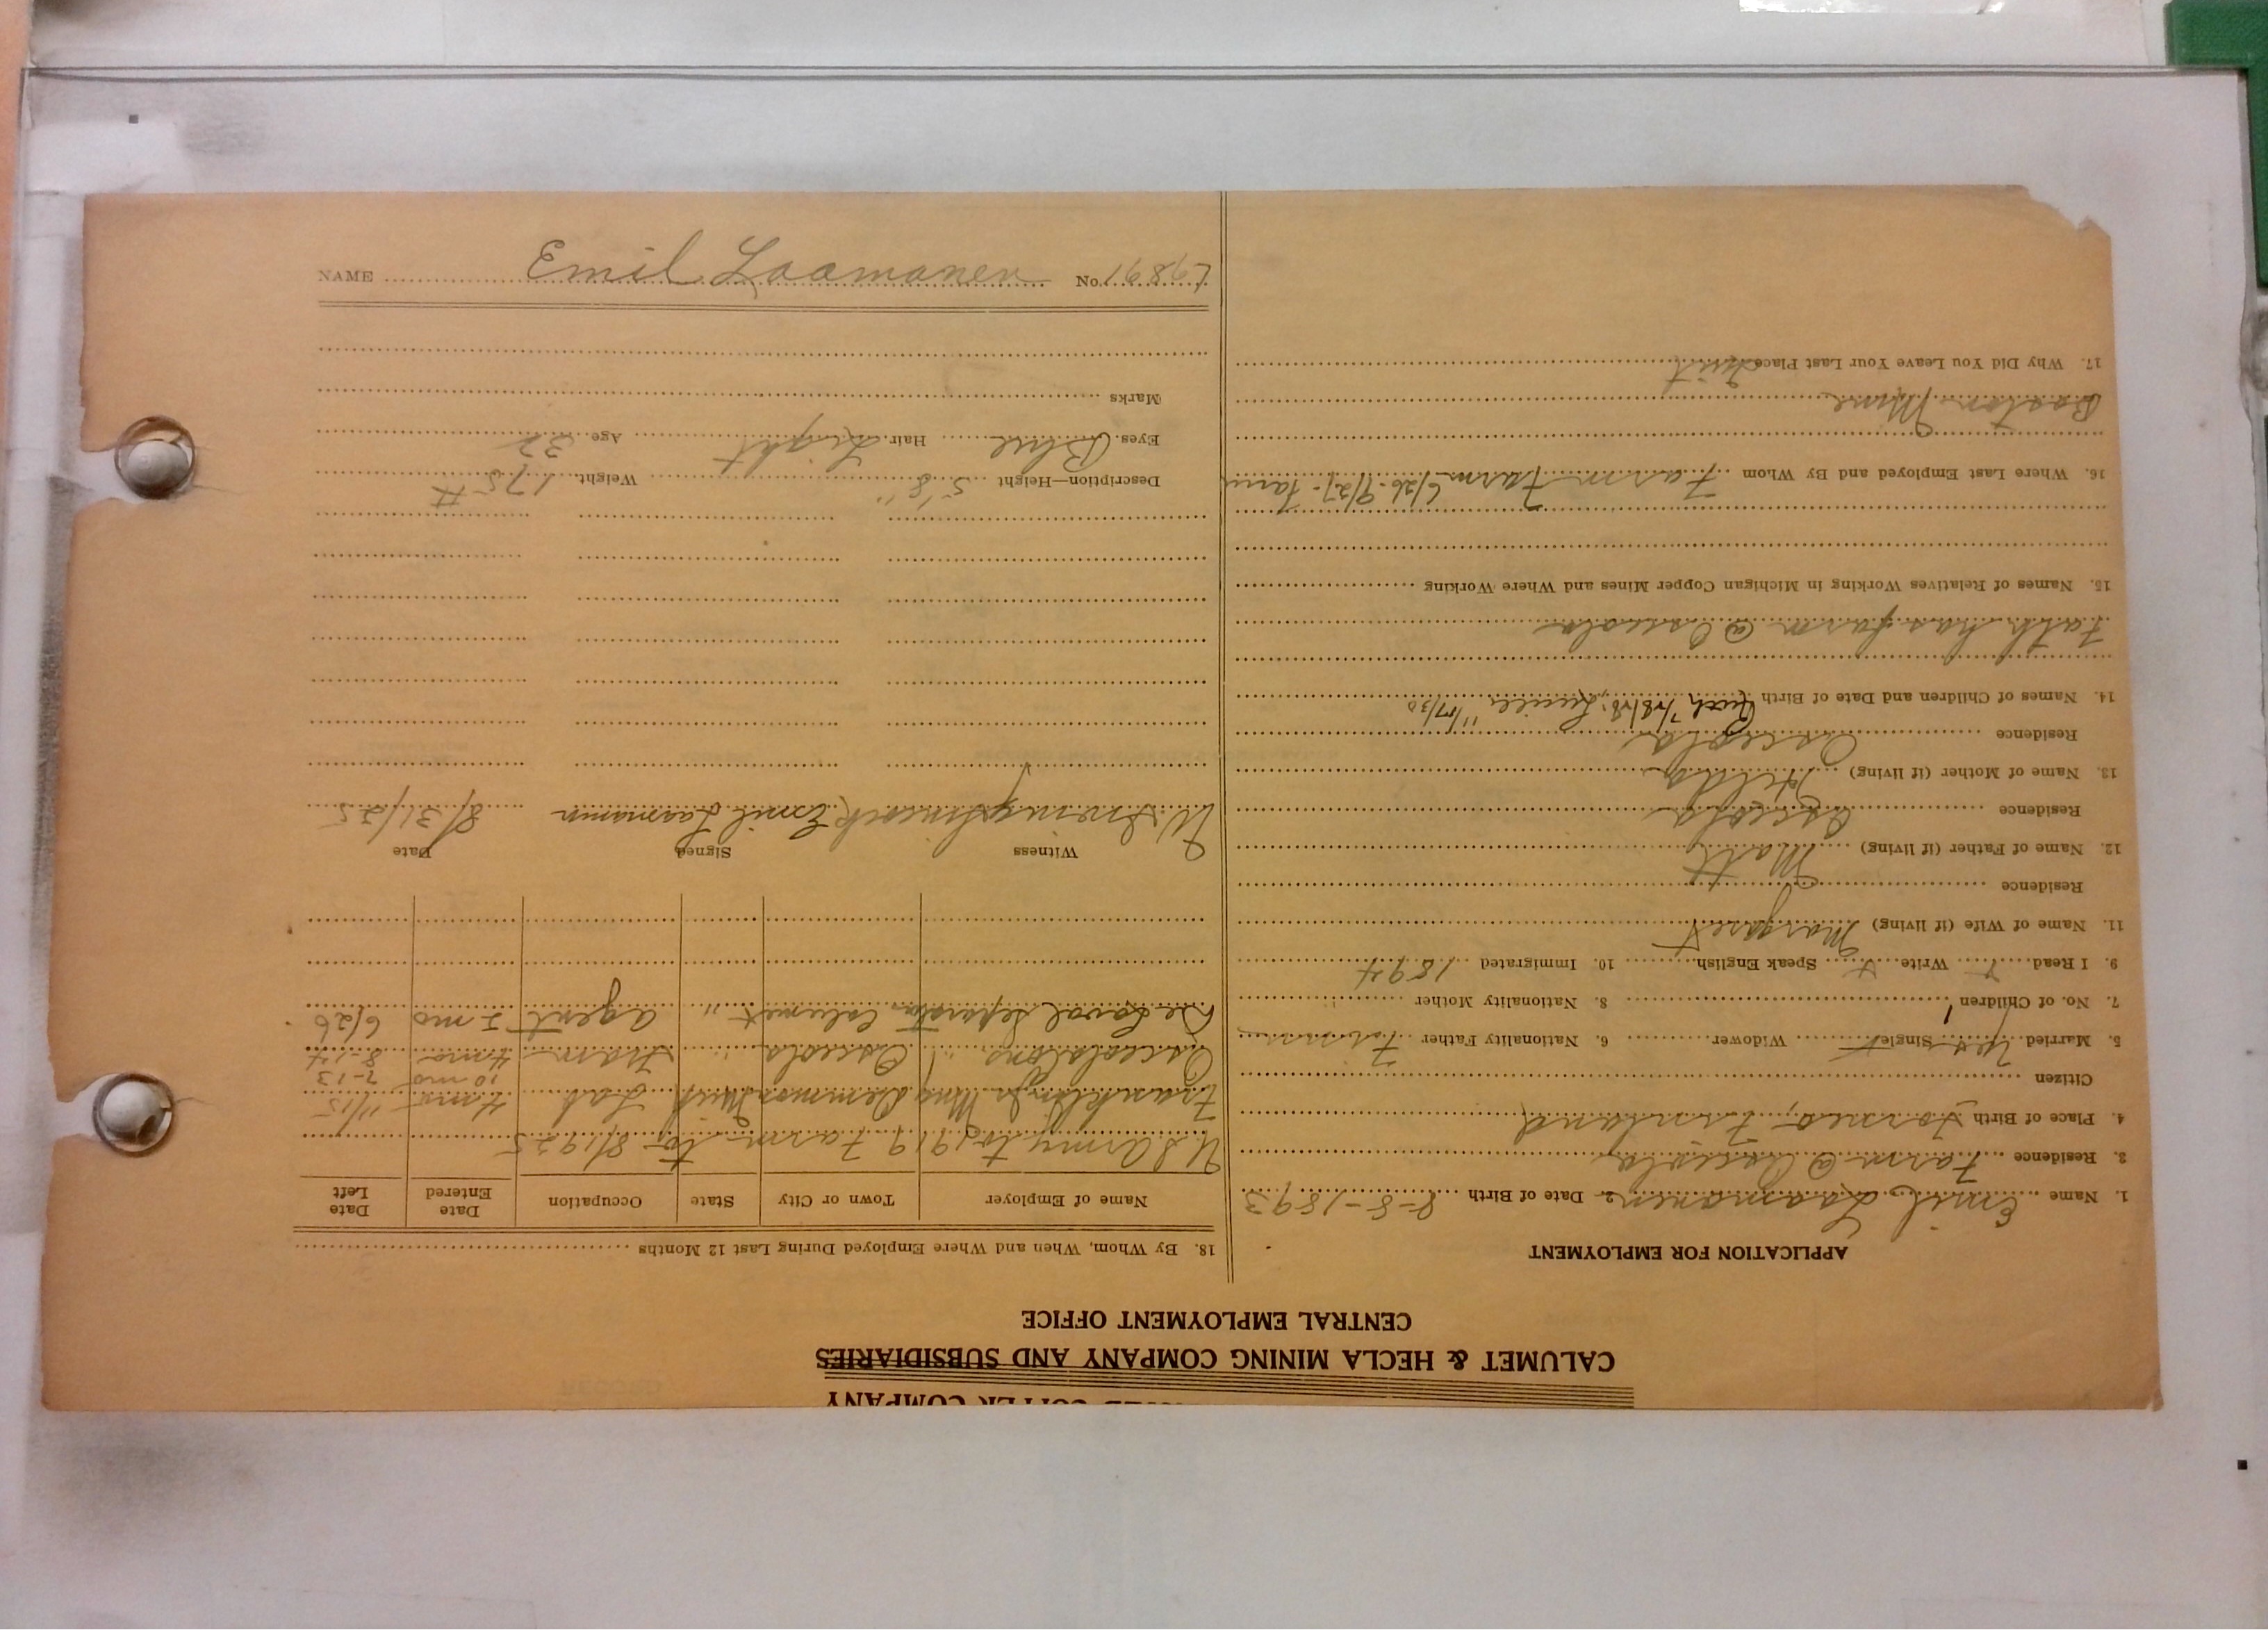 COPPER COMPANY
CALUMET & HECLA MINING COMPANY AND SUBSIDIARIES
CENTRAL EMPLOYMENT OFFICE
APPLICATION FOR EMPLOYMENT
1. Name Emil Laamanen 2. Date of Birth 8-8-1893
3. Residence Farm @ Osceola
4. Place of Birth Finland
Citizen
5. Married Yes Single Widower 6. Nationality Father
7. No. of Children 1 8. Nationality Mother
9. I Read Write Speak English 10. Immigrated 1894
11. Name of Wife (if living) Margret
Residence
12. Name of Father (if living) Matt
Residence Osceola
13. Name of Mother (if living) Hilda
Residence Osceola
14. Names of Children and Date of Birth 11/17/30
Fath has farm @ Osceola
15. Names of Relatives Working in Michigan Copper Mines and Where Working
16. Where Last Employed and By Whom Farm Farm 6/26-9/27-Farm
Boston Mine
17. Why Did You Leave Your Last Place Quit
18. By Whom, When and Where Employed During Last 12 Months
Name of Employer Town or City State Occupation Date Entered Date Left
U S Army to 1919 Farm to 8/1925
Franklin Jr Mng Demmon Mich Lab 4 mos 11/15
10 mo 7-13
Osceola Cons " Osceola " Tram 4 mo 8-14
De Laval Separator Calumet " agent 2 mo 6/26
Witness Signed Date
Emil Laamanen 8/31/25
Description—Height 5'8" Weight 175 #
Eyes Blue Hair Light Age 32
Marks
NAME Emil Laamanen No.